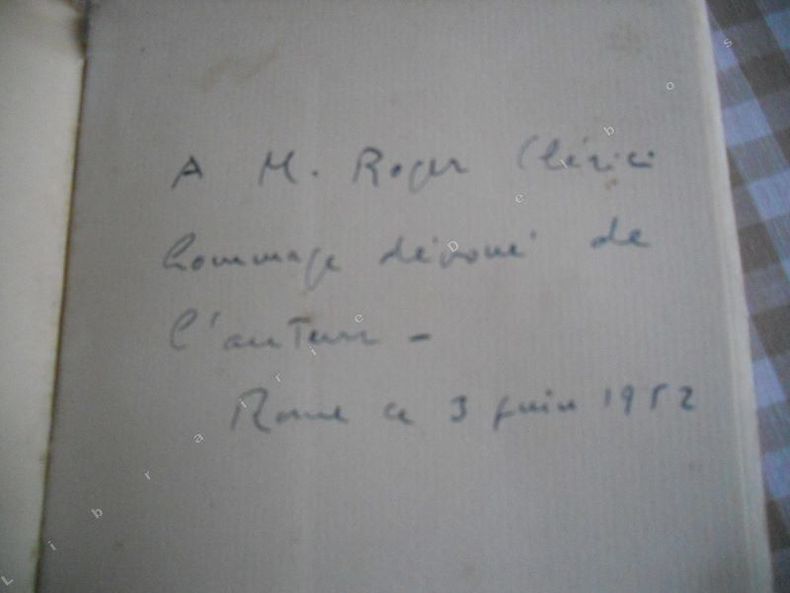 A M. Roger Clérici
hommage dévoué de
l'auteur -
Rome ce 3 juin 1952
Librairie Delbos